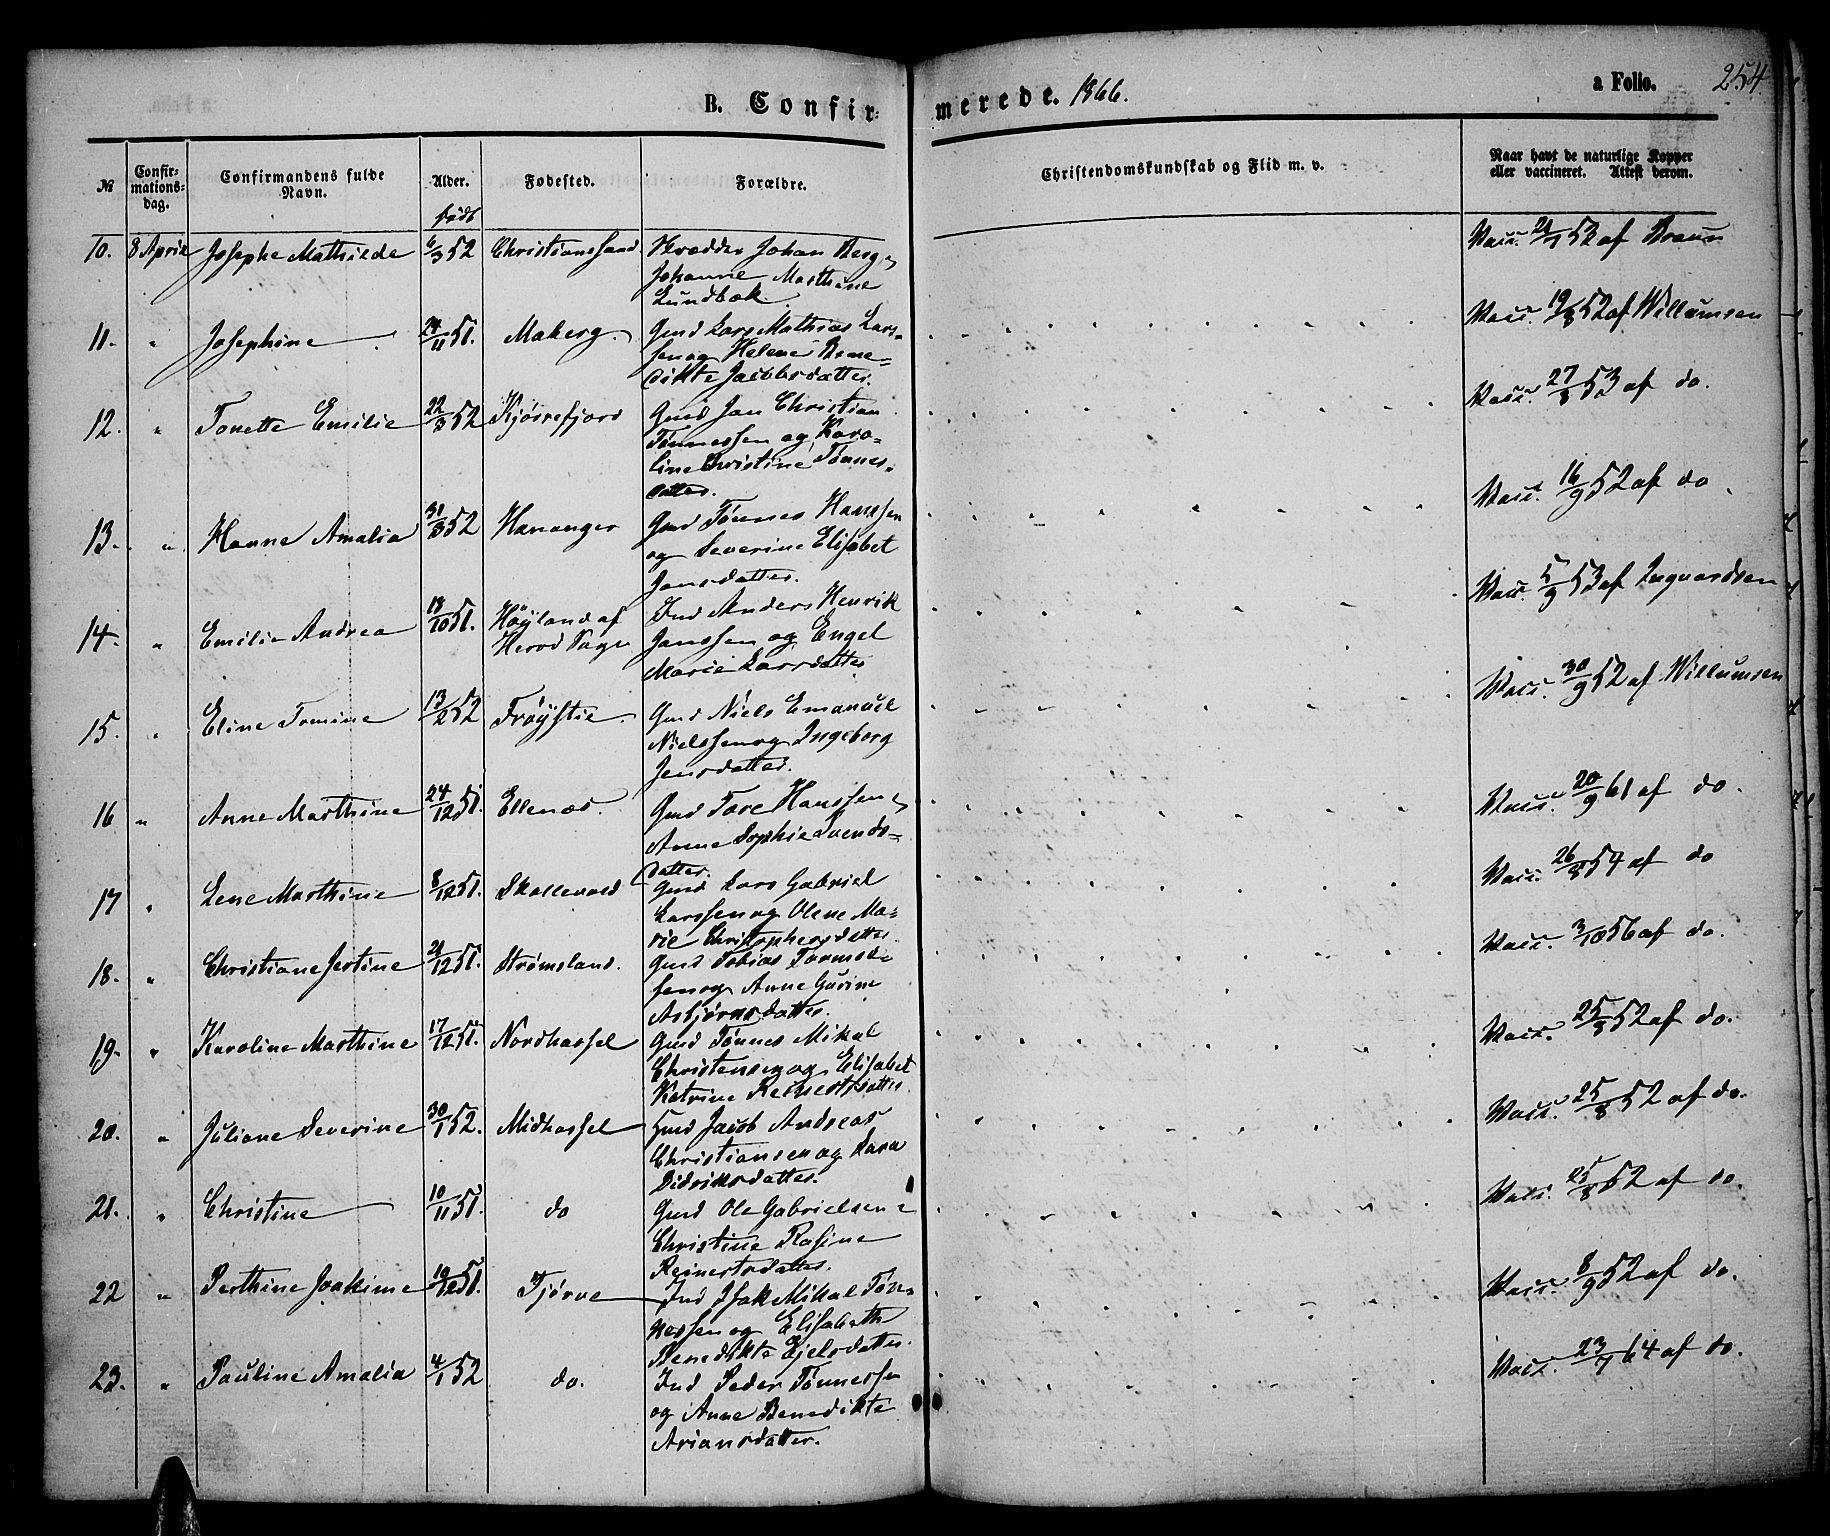 B. Confir-
merede. 1866.
a Folio. 254
№
Confir-
mations-
dag.
Confirmandens fulde
Navn.
Alder.
Fødested.
Forældre.
Christendomskundskab og Flid m. v.
Naar havt de naturlige Kopper
eller vaccineret. Attest derom.
født
10. 8 April Josephe Mathilde 6/3 52 Christianssand Skrædder Johan Berg
Johanne Marthine
Lundbæk.
Vacc. 52 af Braun
11. " Josephine 11 51. Maberg. Gmd Lars Mathias Lars-
sen og Helene Bene-
dikte Jacobsdatter.
Vacc. 19/8 52 af Willumsen
12. " Tonette Emilie 22/3 52 Kjørrefjord Gmd Jan Christian
Tønnessen og Karo-
line Christine Tønnes-
datter.
Vacc. 27/8 53 af do.
13. " Hanne Amalia 31/3 52 Hananger Gmd Tønnes Hanssen
og Severine Elisabet
Jansdatter.
Vacc. 16/9 52 af do.
14. " Emilie Andrea 18/10 51. Høyland af
Herod Sogn
Ind Anders Henrik
Janssen og Engel
Marie Larsdatter
Vacc. 5/9 53 af Inguardsen
15. " Eline Tomine 13/2 52 Trøystie Gmd Niels Emanuel
Nielssen og Ingeborg
Jensdatter.
Vacc. 30/9 52 af Willumsen
16 " Anne Marthine 24/12 51. Ellenæs. Gmd Tore Hanssen
Anne Sophie Svends-
datter.
Vacc. 20/9 61 af do.
17 " Lene Marthine 8/12 51. Skollevold Gmd Lars Gabriel
Larssen og Olene Ma-
rie Christophersdatter.
Vacc. 26/8 54 af do
18. " Christiane Jertine 21/12 51. Strømsland. Gmd Tobias Tormod-
sen og Anne Gurine
Asbjørnsdatter.
Vacc. 3/10 56 af do.
19. " Karoline Marthine 17/12 51. Nordhassel Gmd Tønnes Mikal
Christensen og Elisabet
Katrine Reinertsdatter
Vacc. 25/8 52 af do.
20. " Juliane Severine 30/1 52. Midhassel Hmd Jacob Andreas
Christiansen og Sara
Didriksdatter.
Vacc. 25/8 52 af do.
21. " Christine 10/11 51. do Gmd Ole Gabrielsen
Christine Rasine
Reinertsdatter.
Vacc. 25/8 52 af do.
22 " Perthine Joakime 10/12 51. Tjørve Ind Isak Mikal Tøn-
nessen og Elisabeth
Benedikte Ejelsdatter.
Vacc. 8/9 52 af do.
23. " Pauline Amalia 4/1 52 do. Ind Peder Tønnessen
og Anne Benedikte
Ariansdatter.
Vacc. 23/7 64 af do.